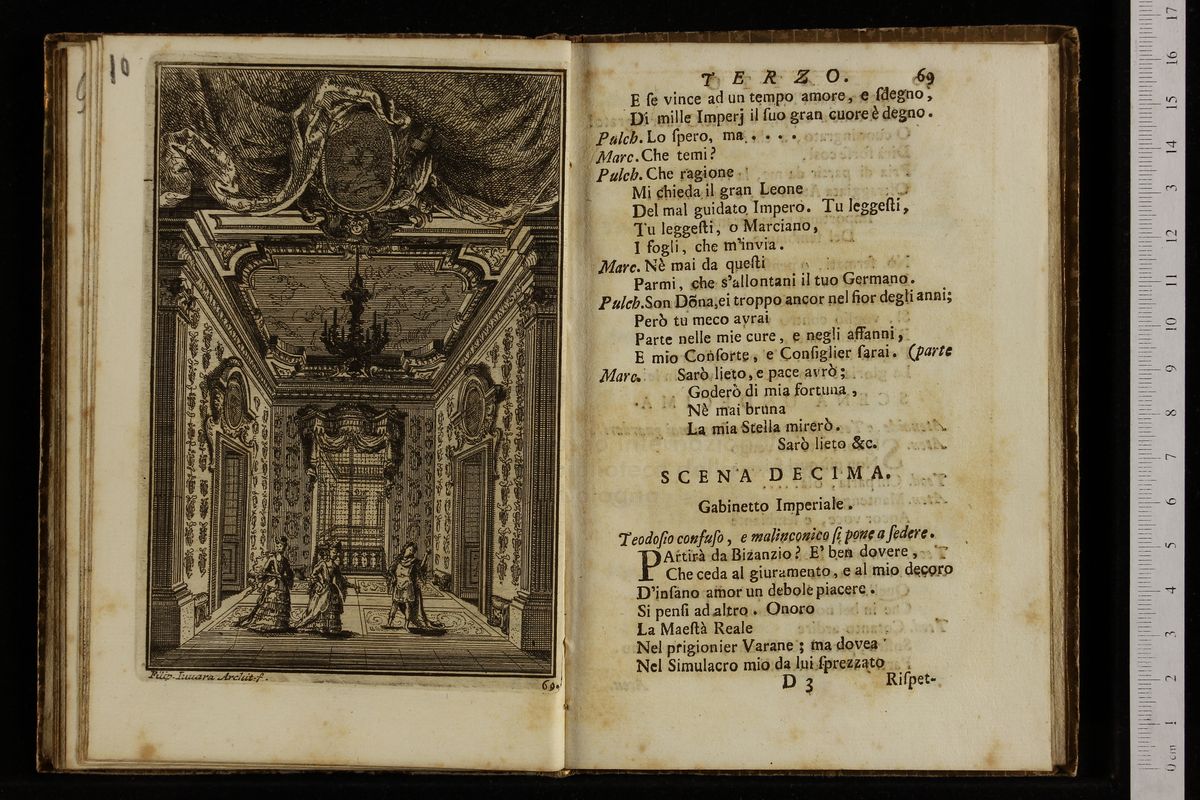 10
Filip. Iuuara Archit. f.
69.
TERZO. 69
E ſe vince ad un tempo amore, e ſdegno,
Di mille Imperj il ſuo gran cuore è degno.
Pulch. Lo ſpero, ma . . . . .
Marc. Che temi?
Pulch. Che ragione
Mi chieda il gran Leone
Del mal guidato Impero. Tu leggeſti,
Tu leggeſti, o Marciano,
I fogli, che m'invia.
Marc. Nè mai da queſti
Parmi, che s'allontani il tuo Germano.
Pulch. Son Dõna, ei troppo ancor nel fior degli anni;
Però tu meco avrai
Parte nelle mie cure, e negli affanni,
E mio Conſorte, e Conſiglier ſarai. (parte
Marc. Sarò lieto, e pace avrò;
Goderò di mia fortuna,
Nè mai bruna
La mia Stella mirerò.
Sarò lieto &c.
SCENA DECIMA.
Gabinetto Imperiale.
Teodoſio confuſo, e malinconico ſi pone a ſedere.
PArtirà da Bizanzio? E' ben dovere,
Che ceda al giuramento, e al mio decoro
D'inſano amor un debole piacere.
Si penſi ad altro. Onoro
La Maeſtà Reale
Nel prigionier Varane; ma dovea
Nel Simulacro mio da lui ſprezzato
D 3 Riſpet-
0 cm 1 2 3 4 5 6 7 8 9 10 11 12 13 14 15 16 17